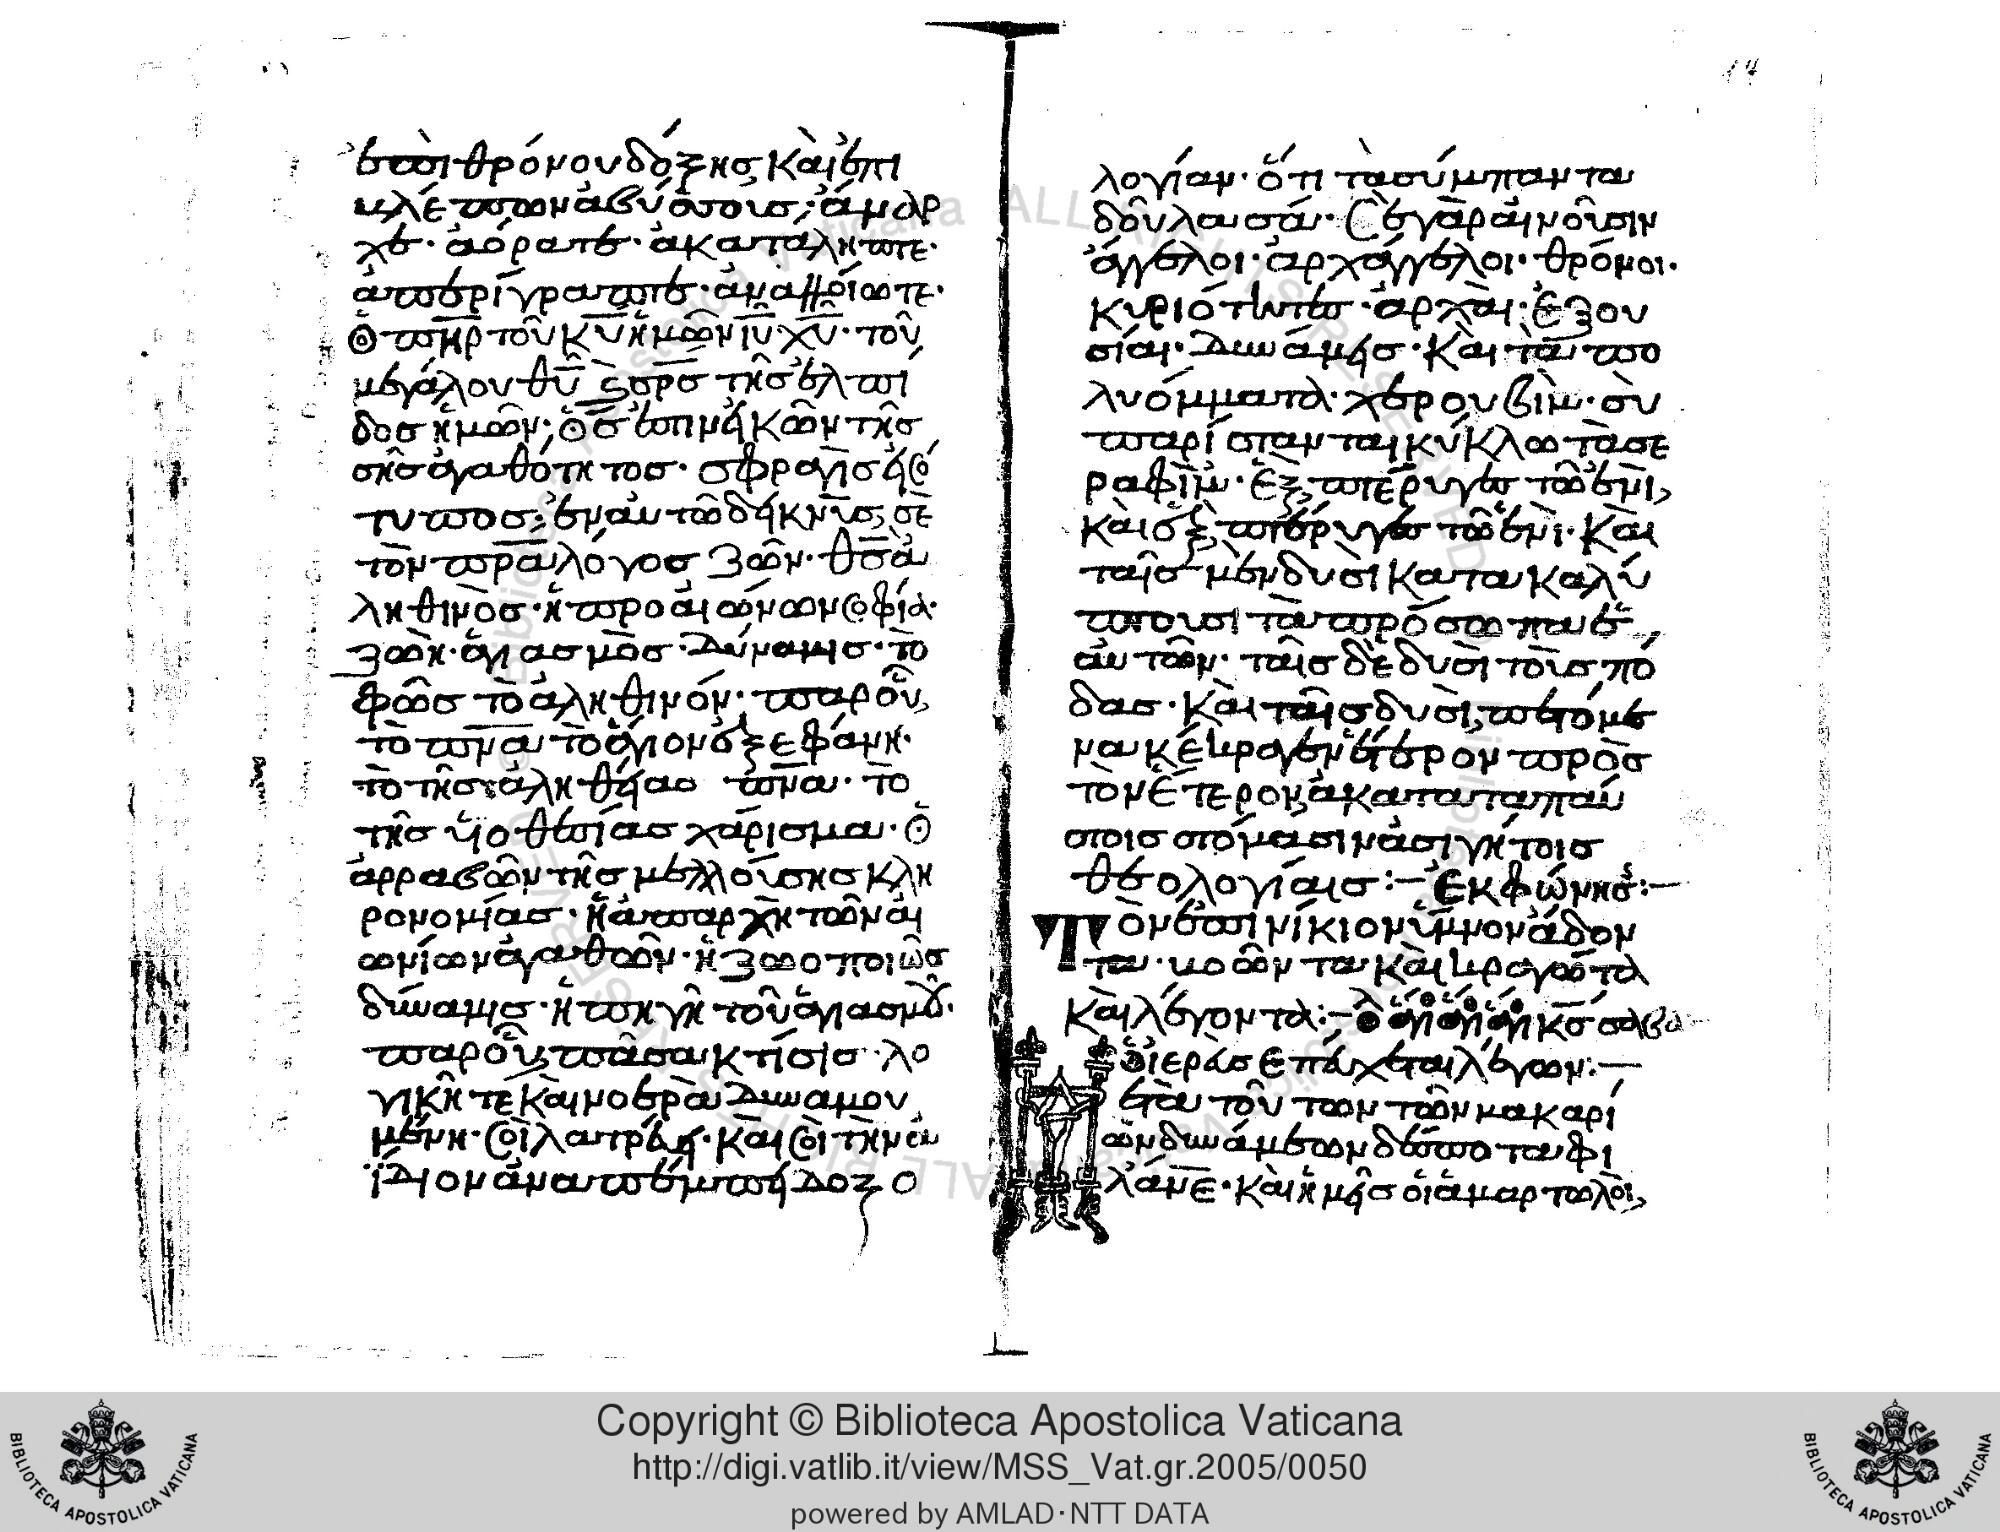 ἐπὶ θρόνου δόξης καὶ ἐπι
βλέπων ἀβύσσοις· ἄναρ
χε· ἀόρατε· ἀκατάληπτε·
ἀπερίγραπτε· ἀναλλοίωτε·
ὁ πηρ τοῦ κυ ἡμῶν ιυ χυ· τοῦ
μεγάλου θυ ϛ σρς τῆς ἐλπί
δος ἡμῶν· ὅς ἐστιν εἰκὼν τῆς
σῆς ἀγαθότητος· σφραγὶς εἰσό
τυπος· ἐν αυτῶ δεικνὺς σὲ
τὸν πρα λόγος ζῶν· θς ἀ
ληθινὸς· ἡ προ αἰώνων σοφία·
ζωὴ· ἁγιασμὸς· δύναμις· τὸ
φῶς τὸ ἀληθινόν· παρ οὗ
τὸ πνα τὸ ἅγιον ἐξεφάνη·
τὸ τῆς ἀληθείας πνα· τὸ
τῆς υἱοθεσίας χάρισμα· ὁ
ἀρραβὼν τῆς μελλούσης κλη
ρονομίας· ἡ ἀπαρχὴ τῶν αἰ
ωνίων ἀγαθῶν· ἡ ζωοποιὸς
δύναμις· ἡ πηγὴ τοῦ ἁγιασμοῦ·
παρ οὗ πᾶσα κτίσις λο
γικῆ τε καὶ νοερὰ δυναμου
μένη· σοὶ λατρεύει· καὶ σοὶ τὴν ἀι
ΐδιον ἀναπέμπει δοξο
14
λογίαν· ὅτι τὰ σύμπαντα
δοῦλα σά· Σὲ γὰρ αἰνοῦσιν
ἄγγελοι· ἀρχάγγελοι· θρόνοι·
κυριότητες· ἀρχαὶ· ἐξου
σίαι· δυνάμεις· καὶ τὰ πο
λυόμματα χερουβὶμ· σὺ
παρίστανται κύκλω τὰ σε
ραφὶμ· ἓξ πτέρυγες τῶ ἑνὶ,
καὶ ἓξ πτέρυγες τῶ ἑνὶ· καὶ
ταῖς μὲν δυσὶ κατακαλύ
πτουσι τὰ πρόσωπα ἑ
αυτῶν· ταῖς δὲ δυσὶ τοὺς πό
δας· καὶ ταῖς δυσὶ, πετόμε
να κέκραγεν ἕτερον πρὸς
τὸν ἕτερον ἀκαταπαύ
στοις στόμασιν ἀσιγήτοις
θεολογίαις:– Ἐκφώνησ:–
Τὸν ἐπινίκιον ὕμνον ἄδον
τα· βοῶντα καὶ κραγότα
καὶ λέγοντα:– ὁ λ ἅγι ἅγι ἅγι κς σαβα
ὁ ἱερὰς επεύχεται λέγων:–
ετὰ τούτων τῶν μακαρί
ων δυνάμεων δέσποτα φι
λάνε· καὶ ἡμεῖς οἱ ἁμαρτωλοὶ,
ALL RIGHTS RESERVED
© Biblioteca Apostolica Vaticana
Copyright © Biblioteca Apostolica Vaticana
http://digi.vatlib.it/view/MSS_Vat.gr.2005/0050
powered by AMLAD·NTT DATA
BIBLIOTECA APOSTOLICA VATICANA
BIBLIOTECA APOSTOLICA VATICANA